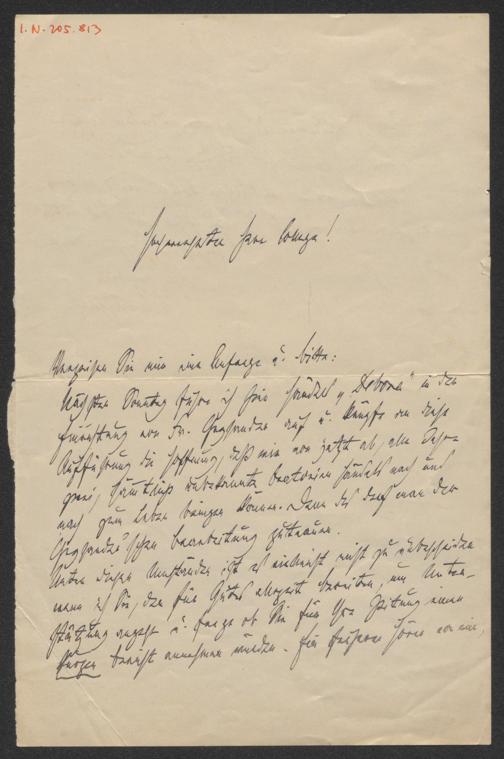 I.N. 205.813
Hochverehrter Herr College!
Verzeihen Sie mir eine Anfrage u. Bitte:
Nächsten Sonntag führe ich hier Händels „Debora" in der
Einrichtung von Dr. Chrysander auf u. knüpfe an diese
Aufführung die Hoffnung, daß wir von jetzt ab, alle Jahre
zwei, hier unbekannte Oratorien Händels nach und
nach zum Leben bringen können. Denn das darf man der
Chrysander'schen Bearbeitung zutrauen.
Unter diesen Umständen ist es vielleicht nicht zu unbescheiden
wenn ich Sie, der für Gutes allezeit bereiten, um Unter-
stützung angehe u. frage ob Sie für Ihre Zeitung einen
kurzen Bericht annehmen würden. Ein hören